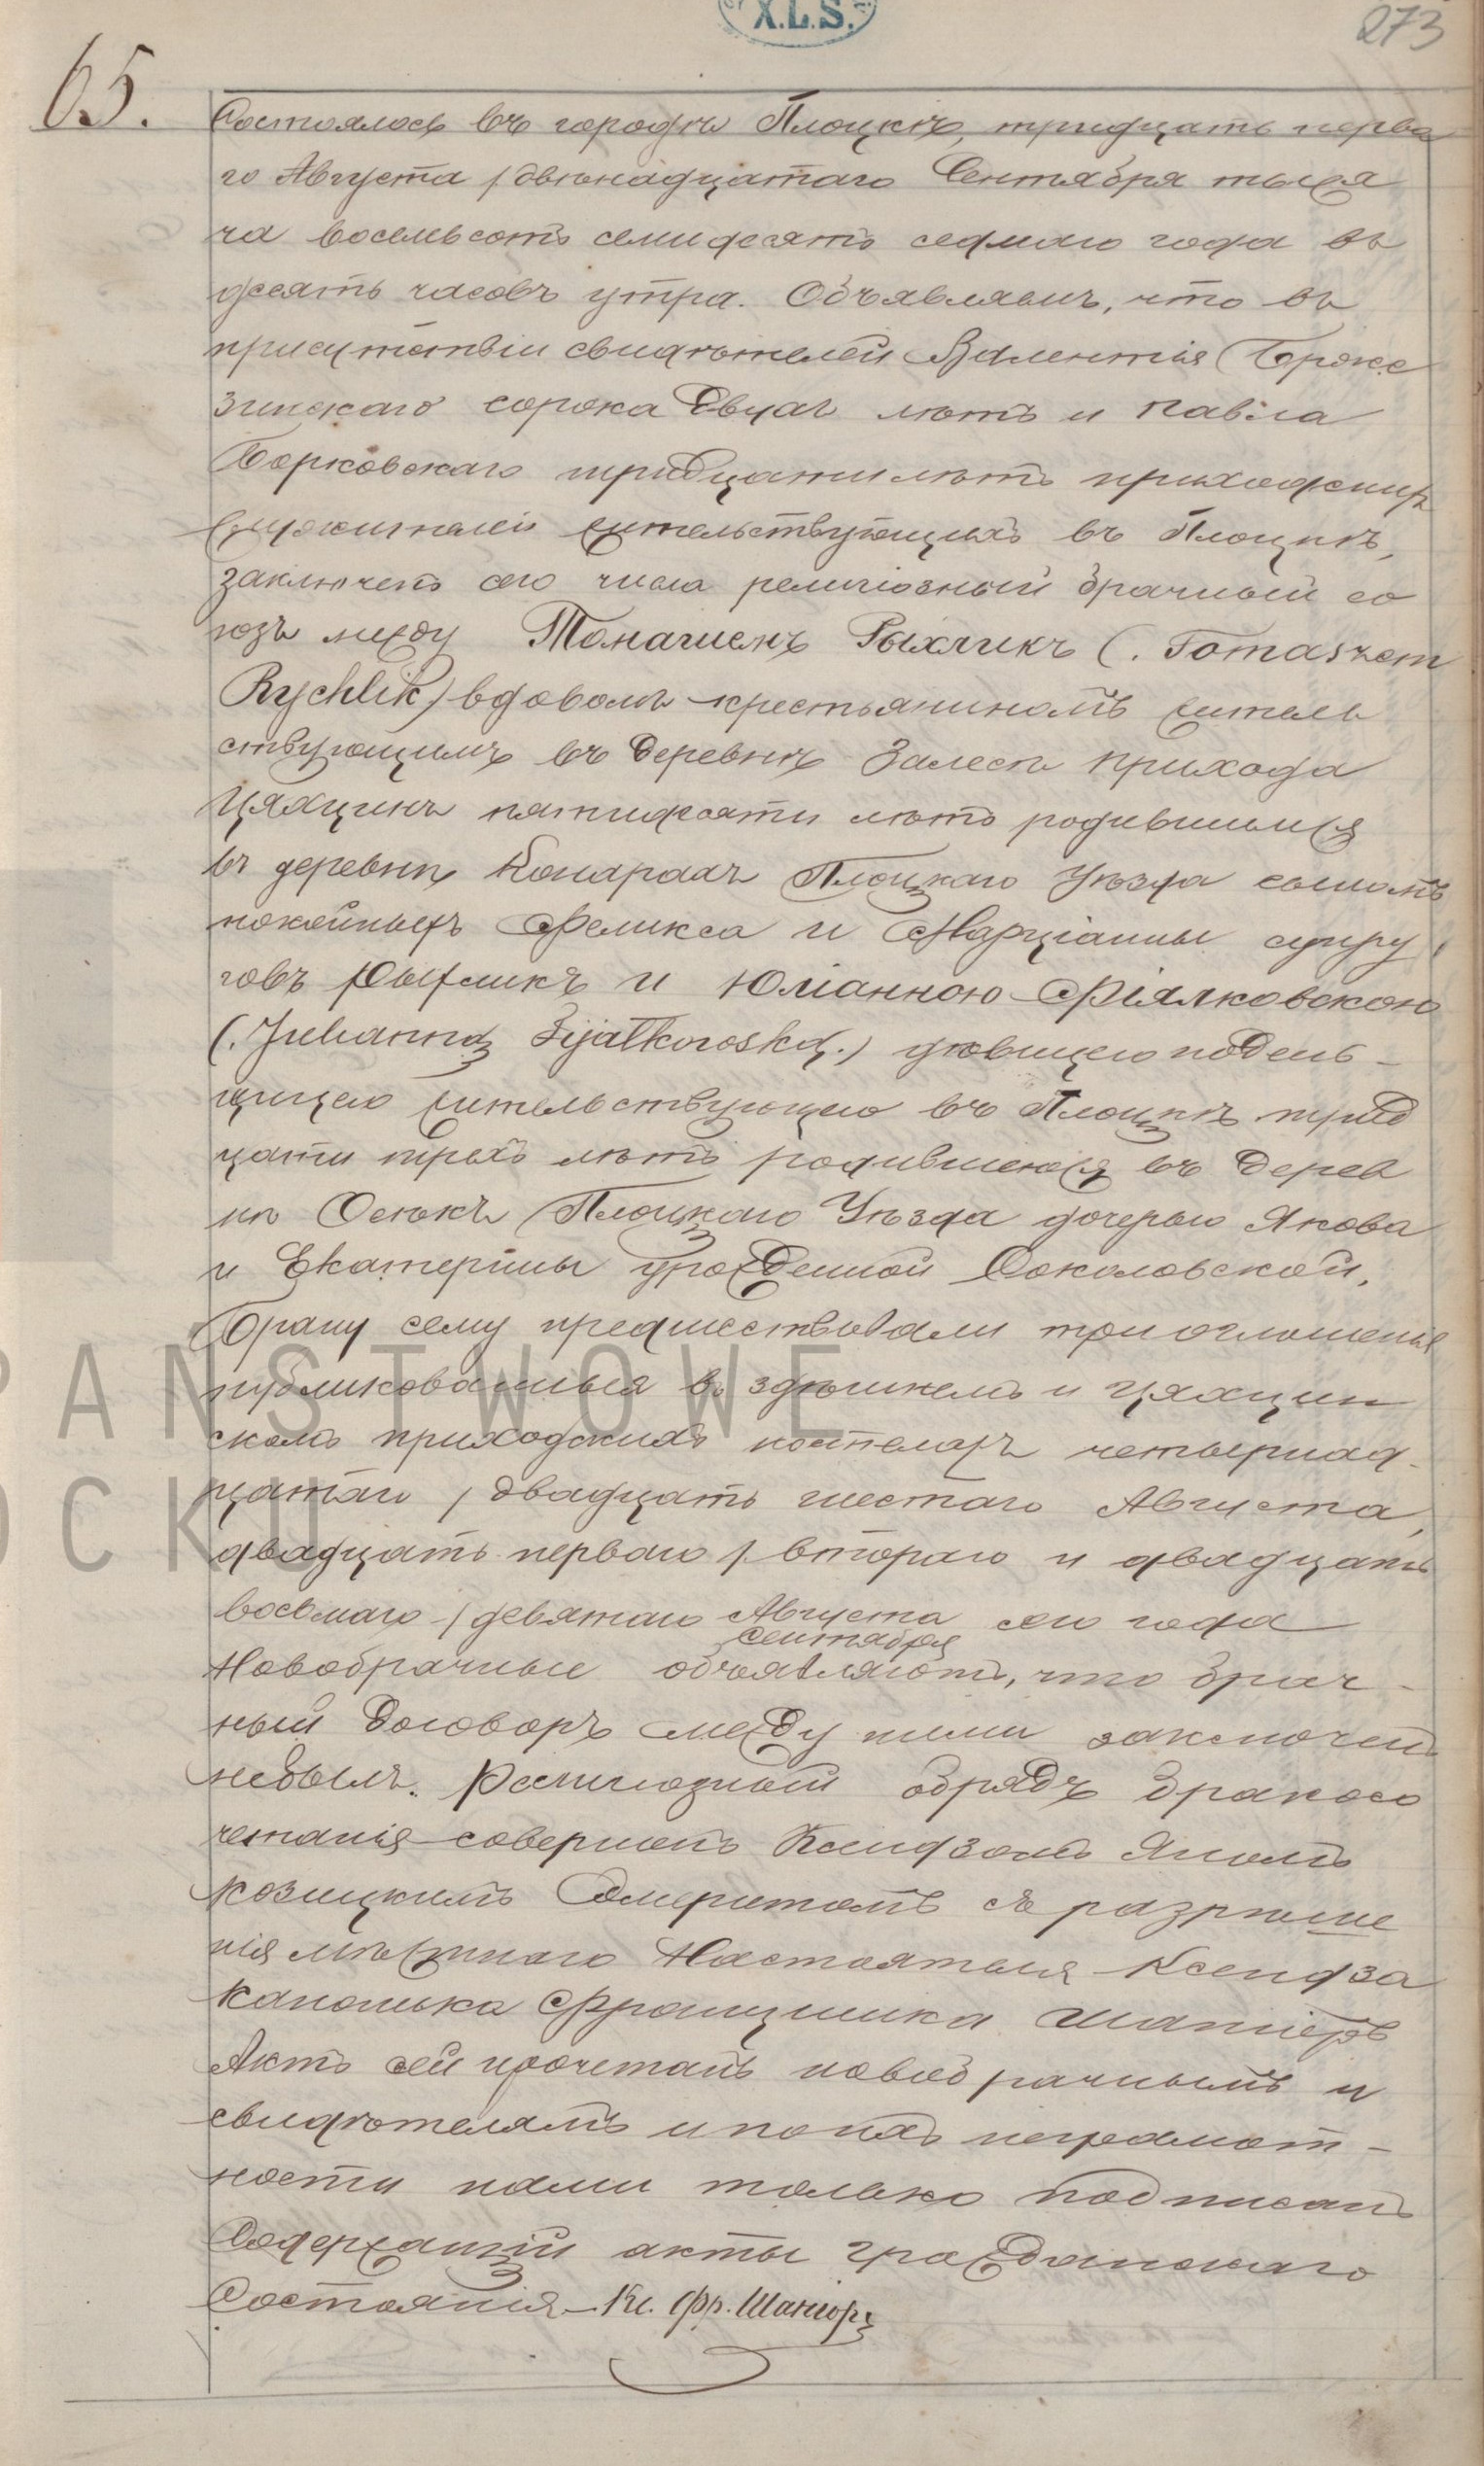 X.L.S.
273
65.
Состоялось въ городѣ Плоцкѣ, тридцать перва
го Августа / двѣнадцатаго Сентября тыся
ча восемьсотъ семидесятъ седмаго года въ
десять часовъ утра. Объявляемъ, что въ
присутствіи свидѣтелей Валентія Бржe
зинскаго сорока двухъ лѣтъ и Павла
Борковскаго тридцати лѣтъ приходскихъ
служителей жительствующихъ въ Плоцкѣ,
заключенъ сего числа религіозный брачный со
юзъ между Томашемъ Рыхликъ (. Tomaszem
Rychlik) вдовомъ крестьяниномъ житель
ствующимъ въ деревнѣ Залесѣ прихода
Цяхцинъ пятидесяти лѣтъ родившимся
въ деревнѣ Конарахъ Плоцкаго Уѣзда сыномъ
покойныхъ Феликса и Марціанны супру
говъ Рыхликъ и Юліанною Фіялковскою
(. Julianną Fijałkowską.) дѣвицею поден-
щицею жительствующею въ Плоцкѣ трид
цати трехъ лѣтъ родившеюся въ дерев
нѣ Осѣкъ Плоцкаго Уѣзда дочерью Якова
и Екатерины урожденной Соколовской.
Браку сему предшествовали три оглошенія
публикованныя въ здѣшнемъ и Цяхцин
скомъ приходскихъ костелахъ четырнад-
цатаго / двадцать шестаго Августа,
двадцать перваго / втораго и двадцать
восьмаго / девятаго Августа сего года
Сентября
Новобрачные объявляютъ, что брач-
ный договоръ между ними заключенъ
небылъ. Религіозный обрядъ бракосо
четанія совершенъ Ксендзомъ Яномъ
Козицкимъ Эмеритомъ съ разрѣше
нія мѣстнаго Настоятеля Ксендза
Каноника Францишка Шаніоръ
Актъ сей прочетанъ новобрачнымъ и
свидѣтелямъ и по ихъ неграмот-
ности нами только подписанъ
Содержащій акты гражданскаго
Состоянія – Кс. Фр. Шаніоръ
PAŃSTWOWE
OCKU